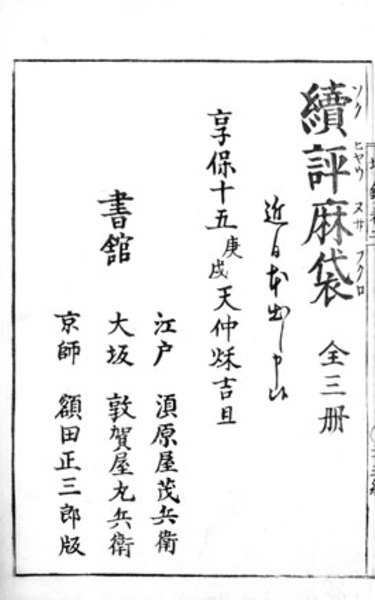 續評麻袋 全三册
ゾク ヒヤウ ヌサ フクロ
近日本出し申候
享保十五庚戌天仲秌吉旦
書館
江戸 須原屋茂兵衛
大坂 敦賀屋九兵衛
京師 額田正三郎版